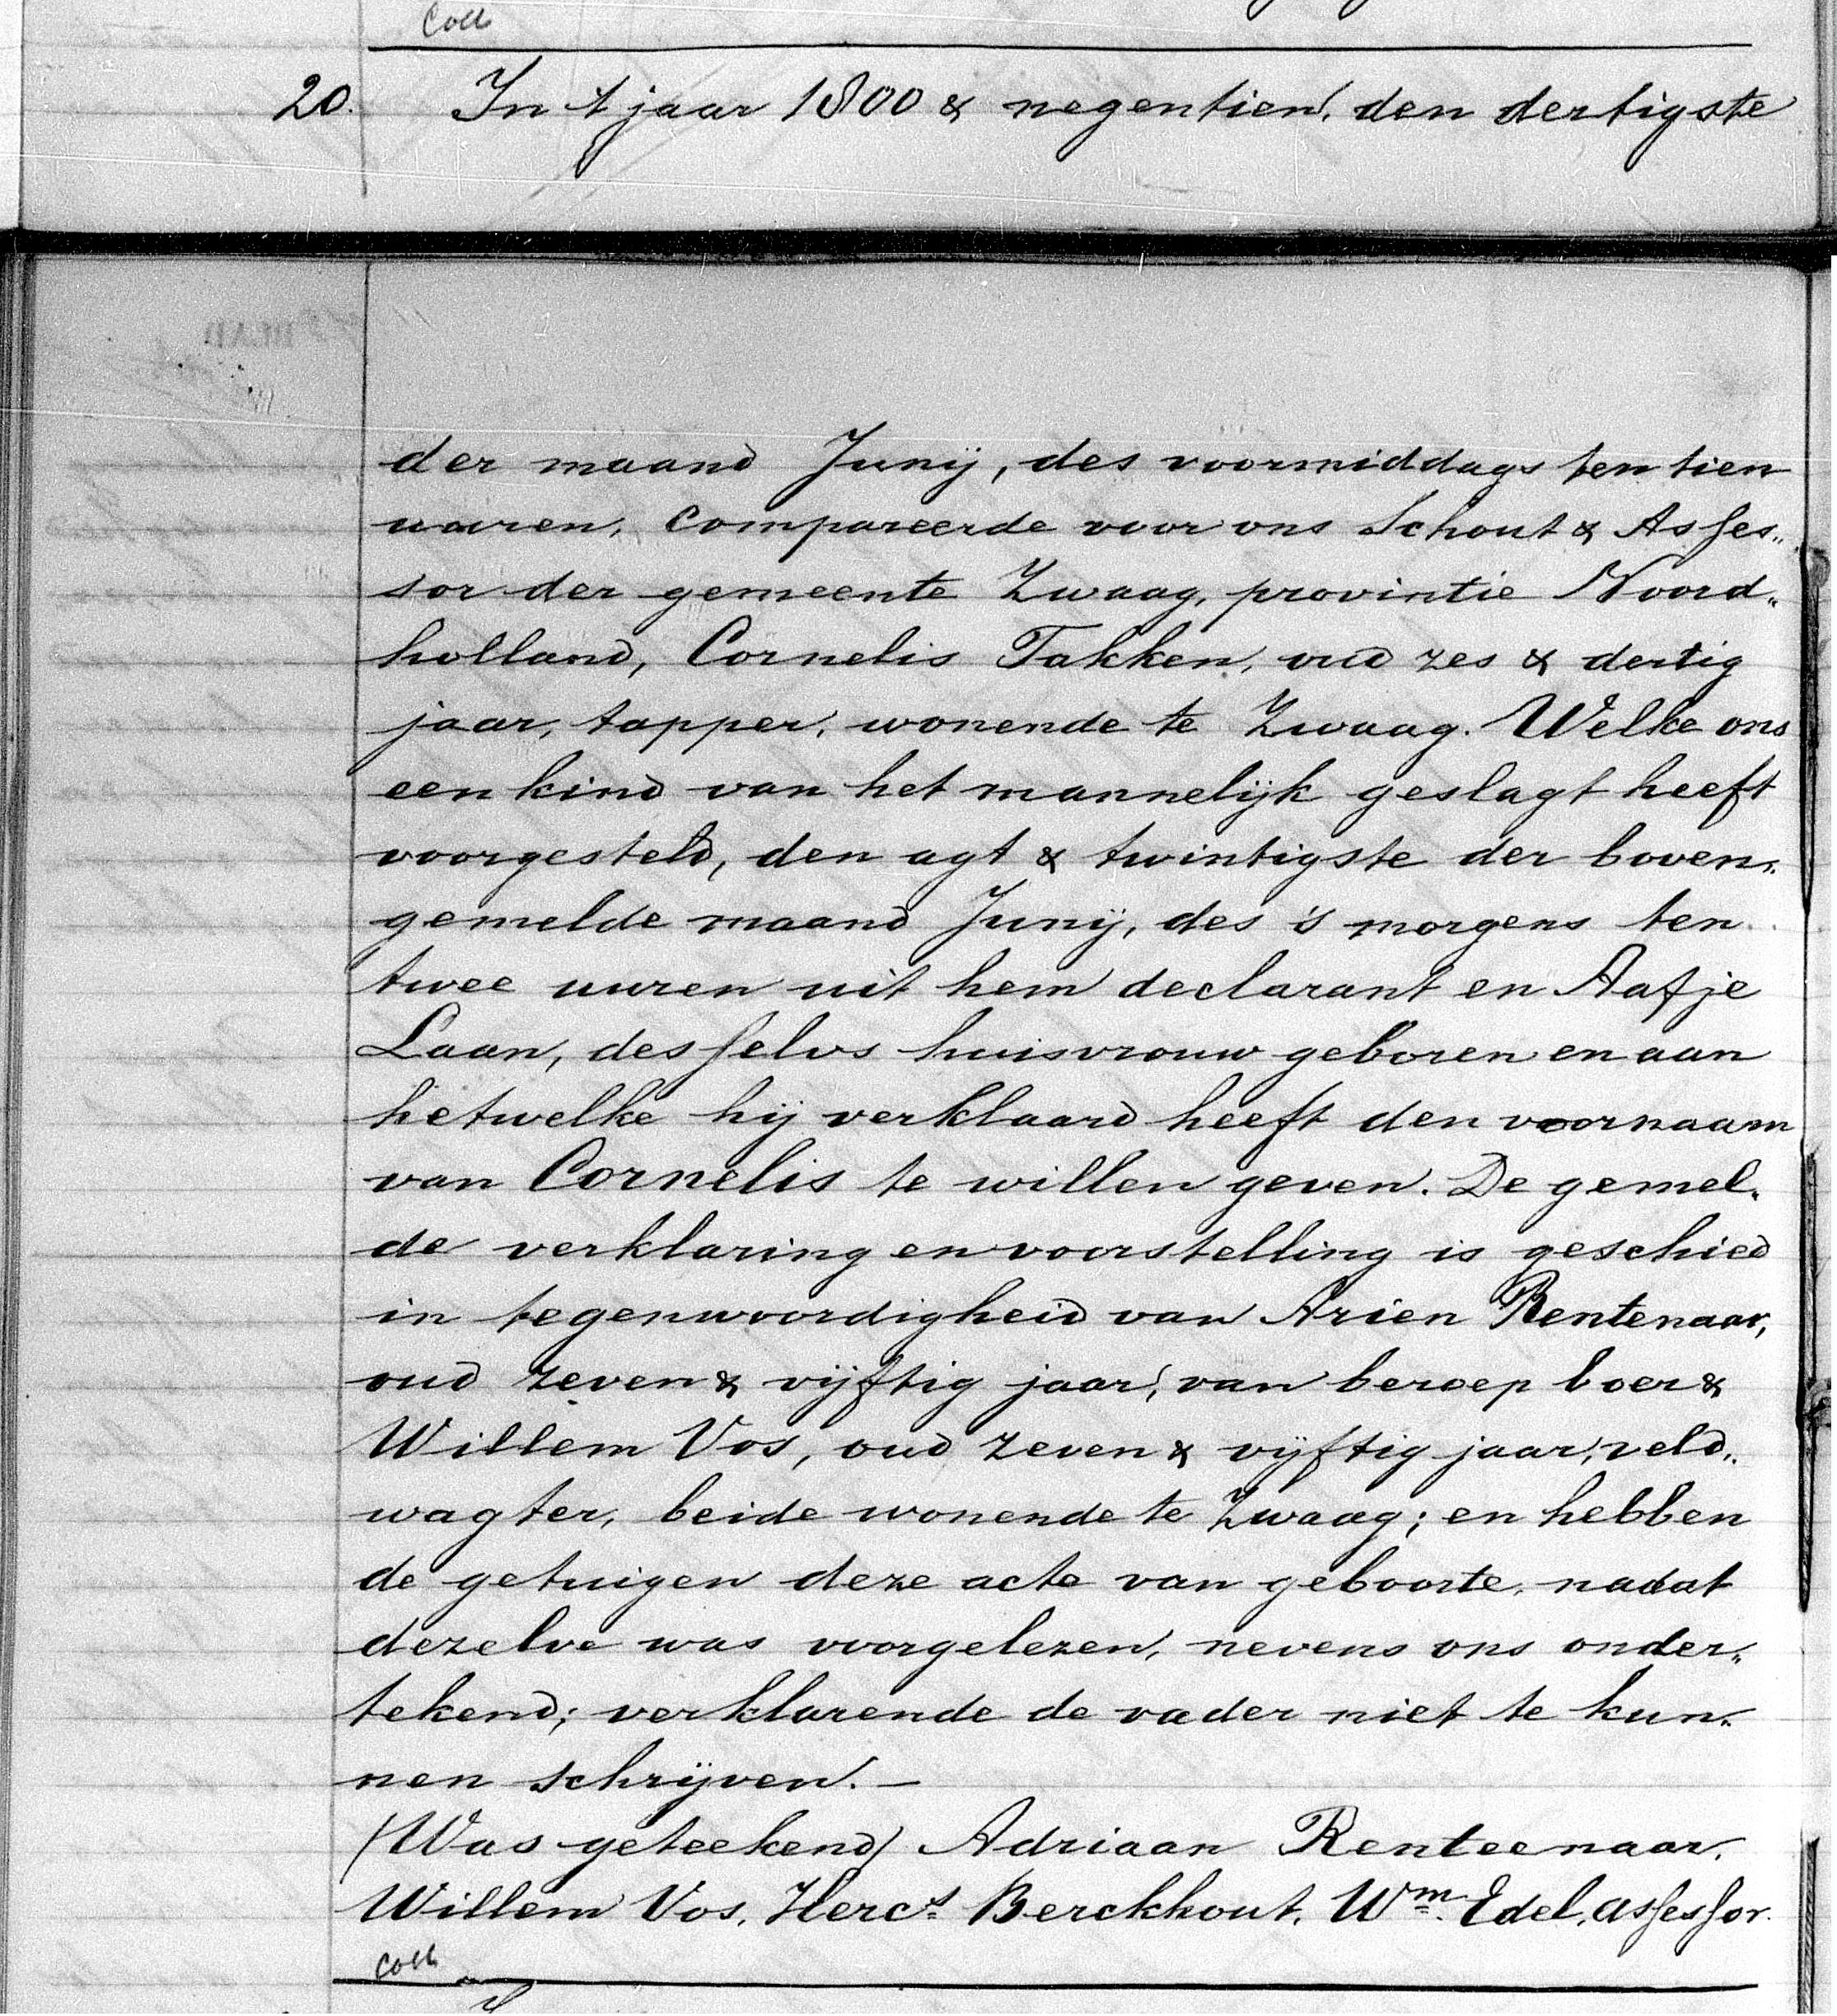 Coll
20. In 't jaar 1800 & negentien, den dertigste
der maand Junij, des voormiddags ten tien
uuren, compareerde voor ons Schout & Asses„
sor der gemeente Zwaag, provintie Noord„
holland, Cornelis Takken, oud zes & dertig
jaar, tapper, wonende te Zwaag. Welke ons
een kind van het mannelijk geslagt heeft
voorgesteld, den agt & twintigste der boven„
gemelde maand Junij, des 's morgens ten
twee uuren uit hem declarant en Aafje
Laan, desselvs huisvrouw geboren en aan
hetwelke hij verklaard heeft den voornaam
van Cornelis te willen geven. De gemel„
de verklaring en voorstelling is geschied
in tegenwoordigheid van Arien Rentenaar,
oud zeven & vijftig jaar, van beroep boer &
Willem Vos, oud zeven & vijftig jaar, veld„
wagter, beide wonende te Zwaag; en hebben
de getuigen deze acte van geboorte, nadat
dezelve was voorgelezen, nevens ons onder„
tekend; verklarende de vader niet te kun„
nen schrijven. —
(Was geteekend) Adriaan Renteenaar,
Willem Vos, Herct. Berckhout, Wm. Edel, assessor.
Coll